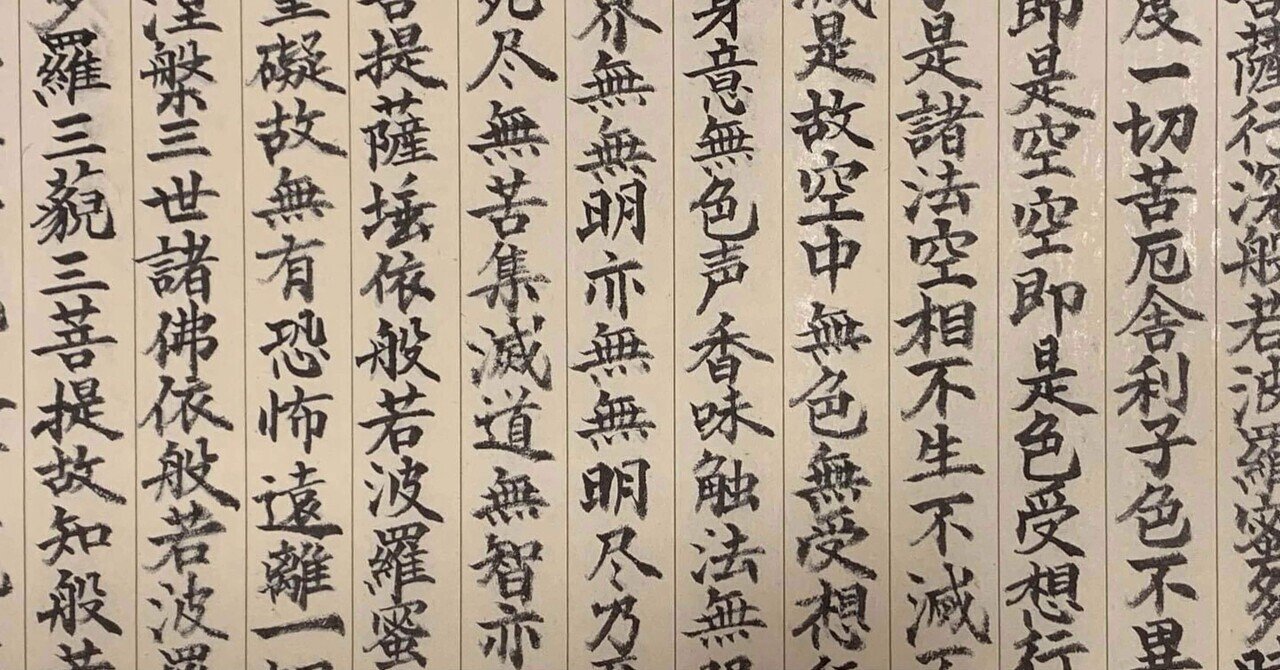 薩行深般若波羅蜜多
度一切苦厄舎利子色不異
即是空空即是色受想行
是諸法空相不生不滅不
是故空中無色無受想
身意無色声香味触法無
界無無明亦無無明尽乃
死尽無苦集滅道無智亦
菩提薩埵依般若波羅蜜
罣礙故無有恐怖遠離一
涅槃三世諸佛依般若波羅
羅三藐三菩提故知般若